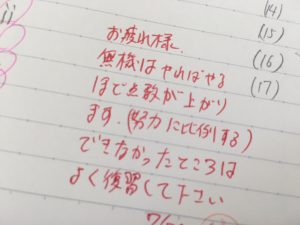 (14)
お疲れ様.
(15)
無機はやればやる
(16)
ほど点数が上がり
(17)
ます.(努力に比例する)
できなかったところは
よく復習して下さい